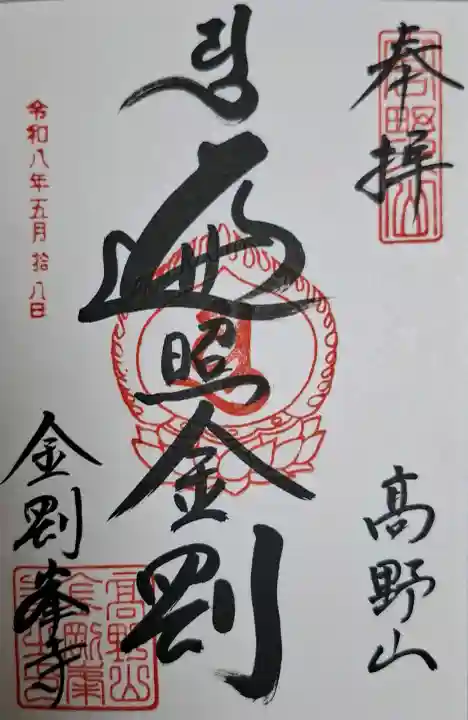 奉拝
高野山
高野山
遍照金剛
令和八年五月拾八日
金剛峯寺
高野山金剛峯寺